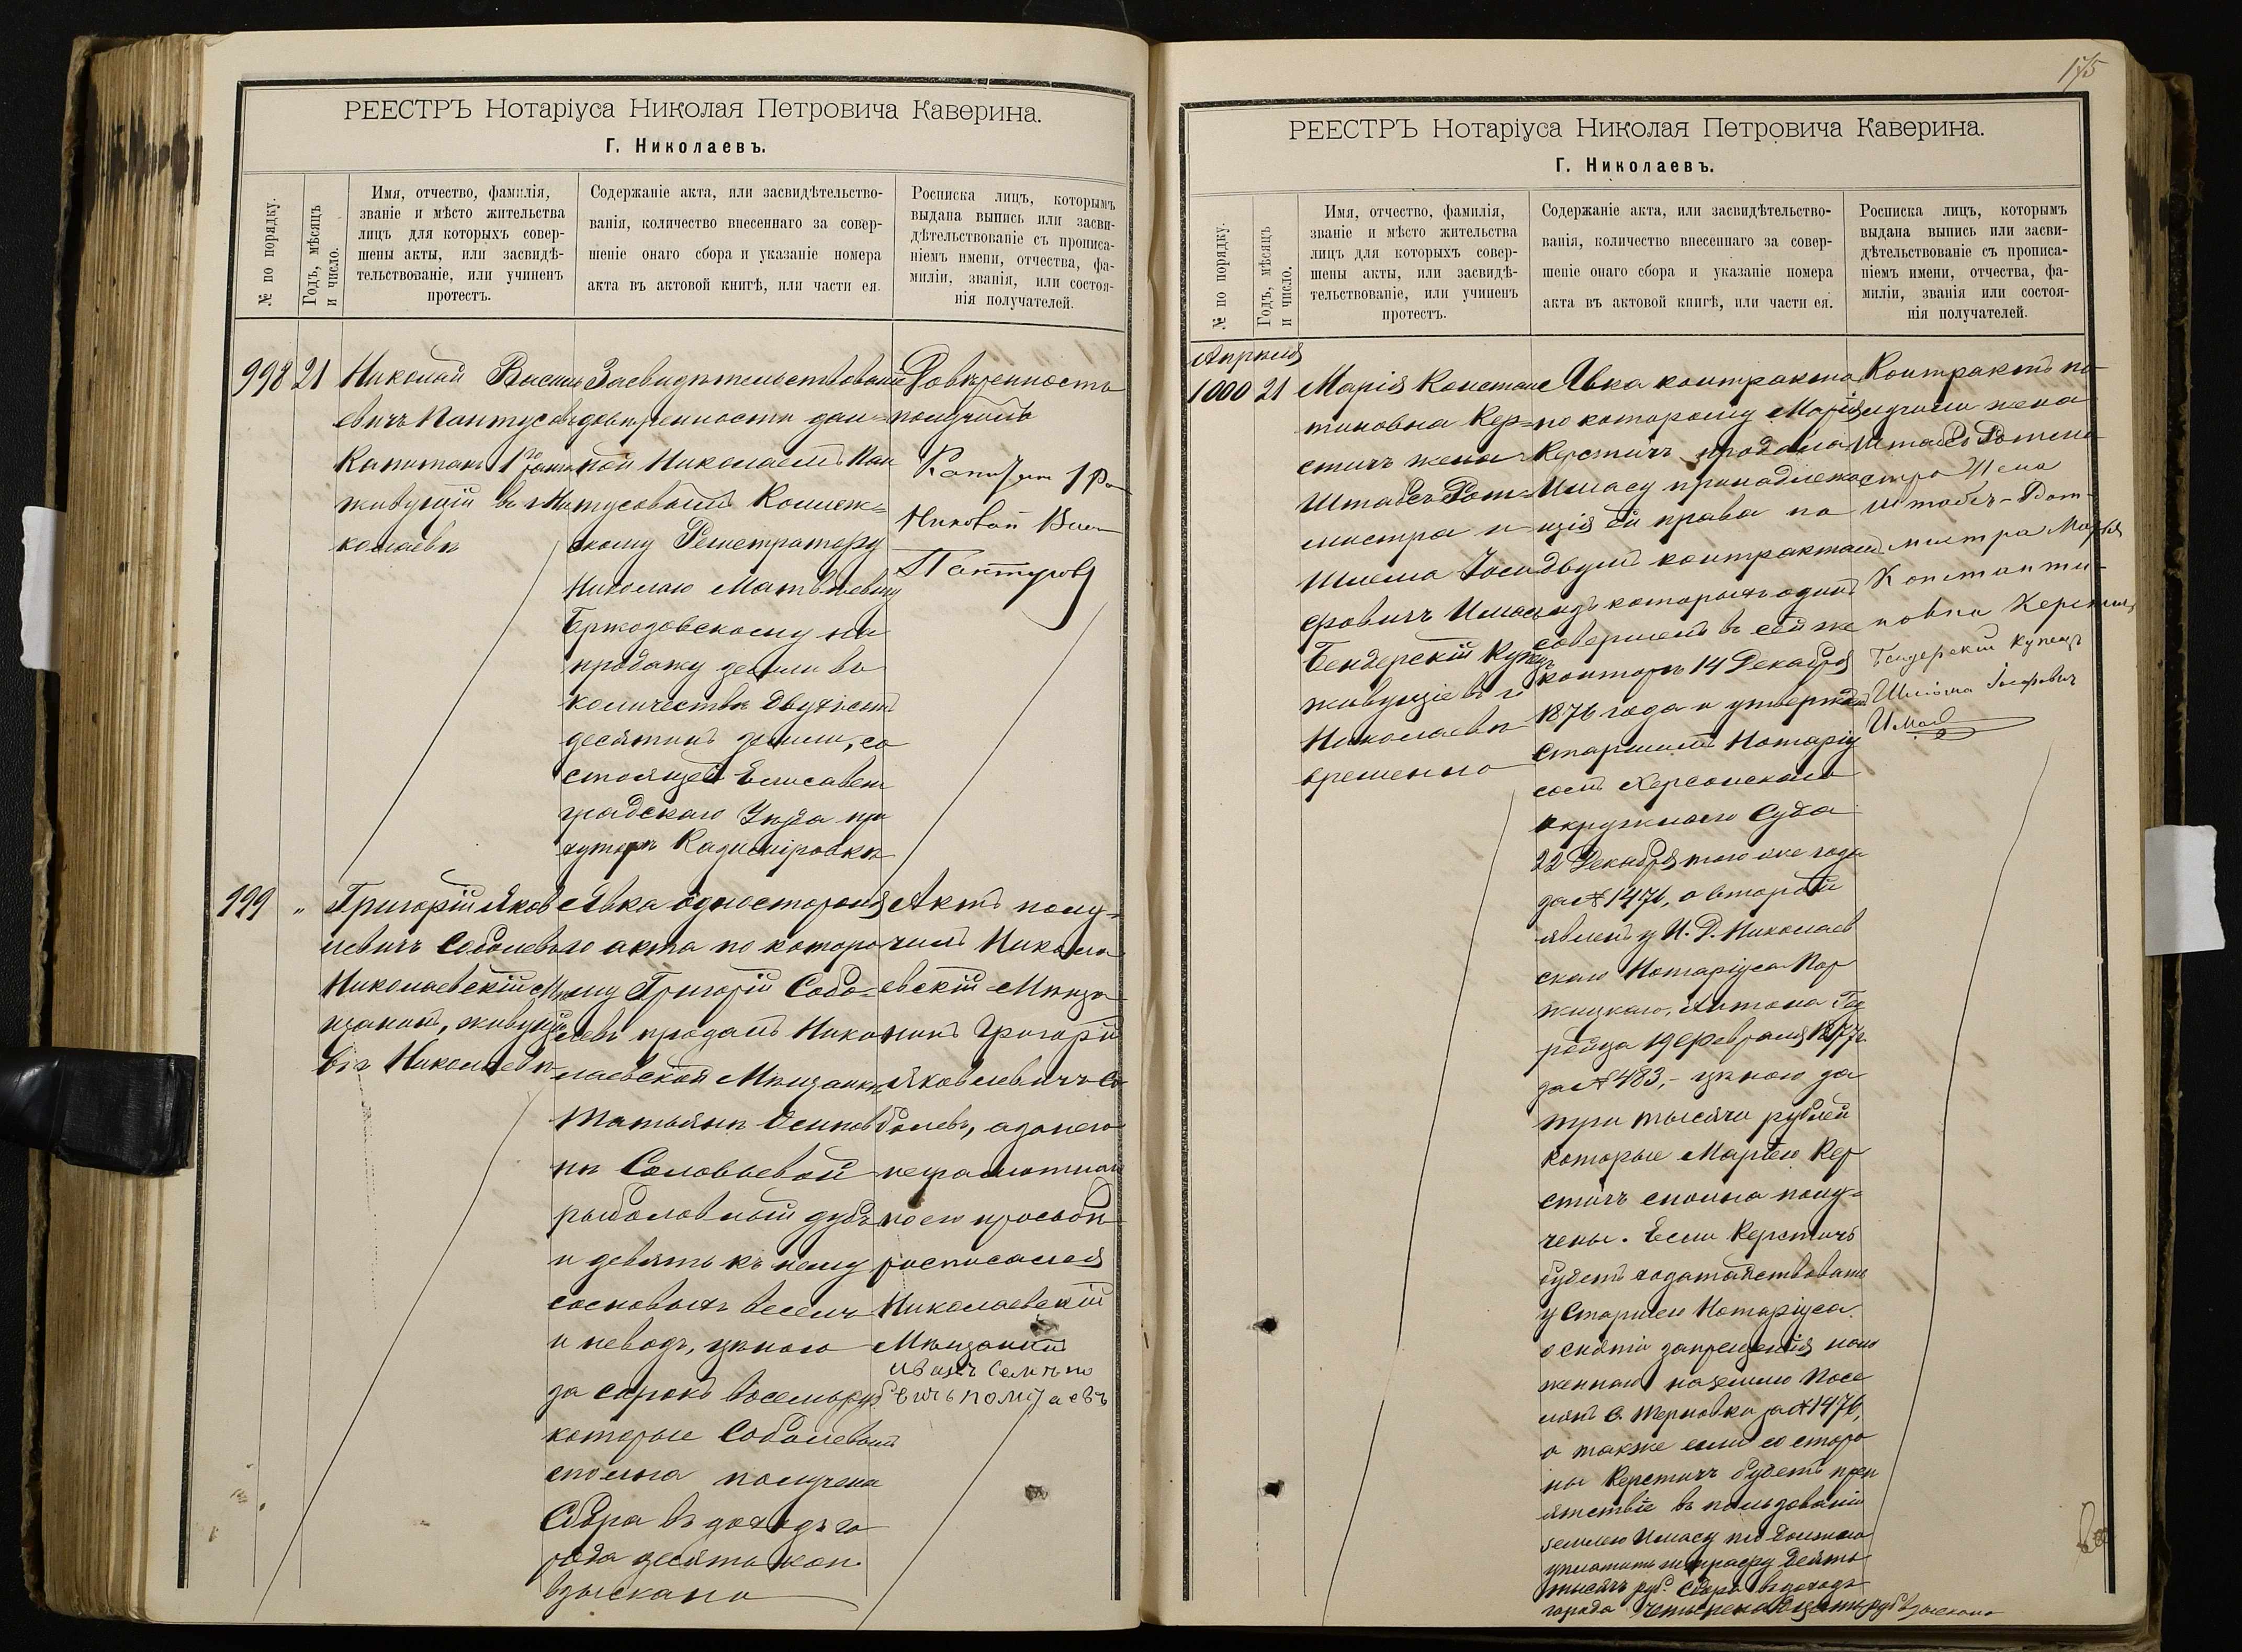 РЕЕСТРЪ Нотаріуса Николая Петровича Каверина.
Г. Николаевъ.
№ по порядку.
Годъ, мѣсяцъ
и число.
Имя, отчество, фамилія,
званіе и мѣсто жительства
лицъ для которыхъ совер-
шены акты, или засвидѣ-
тельствованіе, или учиненъ
протестъ.
Содержаніе акта, или засвидѣтельство-
ванія, количество внесеннаго за совер-
шеніе онаго сбора и указаніе номера
акта въ актовой книгѣ, или части ея.
Росписка лицъ, которымъ
выдана выпись или засви-
дѣтельствованіе съ прописа-
ніемъ имени, отчества, фа-
миліи, званія, или состоя-
нія получателей.
998
21
Николай Василь
евичъ Пантусовъ
Капитанъ 1го ранга
живущій въ г. Ни
колаевѣ
Засвидѣтельствованіе
довѣренности дан=
ной Николаемъ Пан
тусовымъ Коллеж=
скому Регистратору
Николаю Матвѣевичу
Бржозовскому на
продажу земли въ
количествѣ двухсотъ
десятинъ земли, со
стоящей Елисавет
градскаго Уѣзда при
хуторѣ Казиміровкѣ
Довѣренность
получилъ
Капитан 1 Ра
Николай Вас
Пантусовъ
999
"
Григорій Яков
левичъ Соболевъ
Николаевскій Мѣ
щанинъ, живущій
въ г Николаевѣ
Явка односторонн
го акта по которо
му Григорій Собо=
левъ продалъ Нико
лаевской Мѣщанкѣ
Татьянѣ Осипов
нѣ Соловьевой
рыболовный дубъ
и девять къ нему
сосновыхъ веселъ
и неводъ, цѣною
за сорокъ восемь руб
которые Соболевымъ
сполна получены
Сбора въ доходъ го
рода десять коп.
взыскано
Актъ полу=
чилъ Никола
евскій Мѣща
нинъ Григорій
Яковлевичъ Со
болевъ, а за него
неграмотнаго
по его просьбѣ
росписался
Николаевскій
Мѣщанинъ
Иванъ
175
РЕЕСТРЪ Нотаріуса Николая Петровича Каверина.
Г. Николаевъ.
№ по порядку.
Годъ, мѣсяцъ
и число.
Имя, отчество, фамилія,
званіе и мѣсто жительства
лицъ для которыхъ совер-
шены акты, или засвидѣ-
тельствованіе, или учиненъ
протестъ.
Содержаніе акта, или засвидѣтельство-
ванія, количество внесеннаго за совер-
шеніе онаго сбора и указаніе номера
акта въ актовой книгѣ, или части ея.
Росписка лицъ, которымъ
выдана выпись или засви-
дѣтельствованіе съ прописа-
ніемъ имени, отчества, фа-
миліи, званія или состоя-
нія получателей.
Апрѣля
1000
21
Марія Констан
тиновна Кер=
стичъ жена
Штабсъ Рот=
мистра и
Шлема Іоси
фовичъ Имасъ
Бендерскій Купецъ
живущіе въ г
Николаевѣ
временно
Явка контракта
по которому Марія
Керстичъ продала
Имасу принадлежа
щія ей права по
двумъ контрактамъ
изъ которыхъ одинъ
совершенъ въ сей же
конторѣ 14 Декабря
1876 года и утвержденъ
Старшимъ Нотаріу
сомъ Херсонскаго
Окружнаго Суда
22 Декабря того же года
за № 1476, а второй
явленъ у И. Д. Николаев
скаго Нотаріуса Кор
жицкаго, Антона
19 Февраля 1877 г
за № 483, - цѣною за
три тысячи рублей
которые Маріею Кер
стичъ сполна полу=
чены. Если Керстичъ
будетъ ходатайствовать
у Старшаго Нотаріуса
о снятіи запрещенія нало
женнаго на землю Посе
лянъ С. Терновки за № 1476,
а также если со сторо
ны Керстичъ будетъ преп
ятствіе въ пользованіи
землею Имасу то должна
уплатить штрафу десять
тысячъ руб. Сбора въ доходъ
города руб взыскано
Контрактъ по
лучили жена
Штабсъ Ротми
стра Жена
Штабсъ-Рот-
мистра Марья
Константи-
новна Керстичъ
Бендерскій купецъ
Шлиома Іосифовичъ
Имасъ